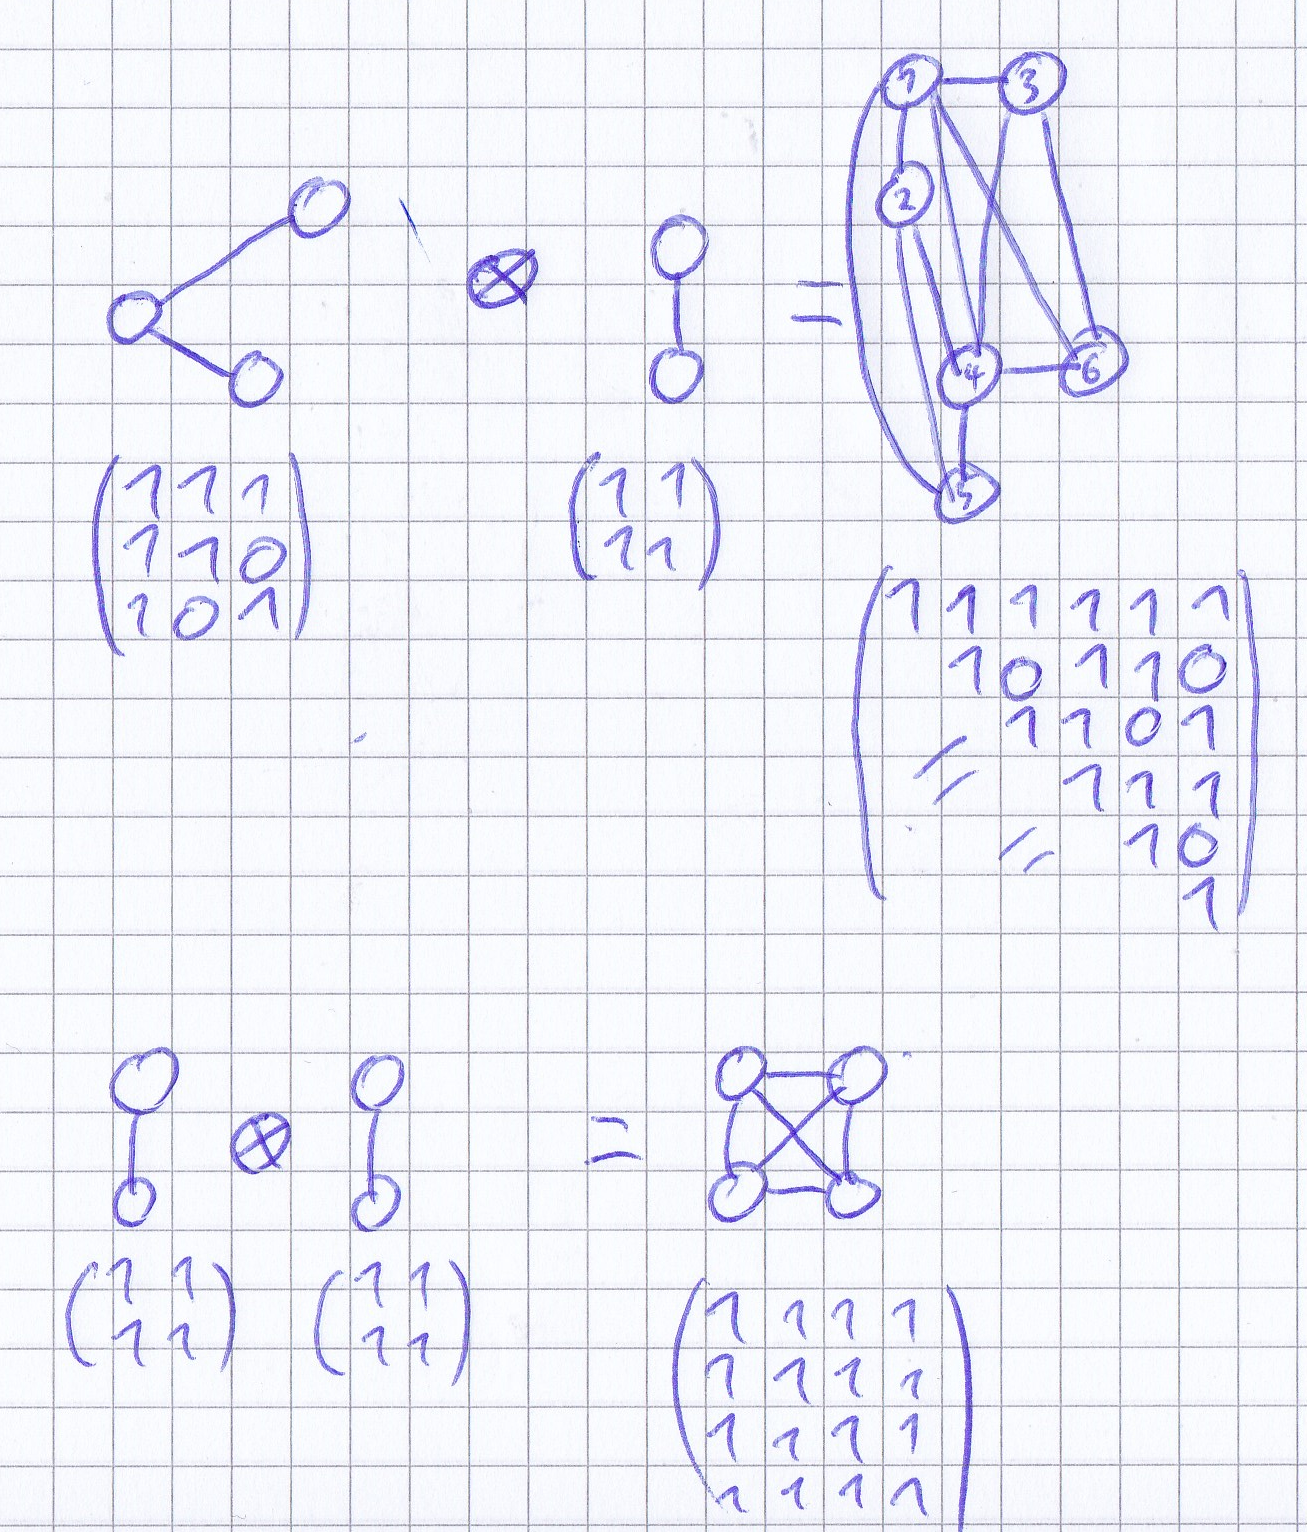 1 3
2
⊗ =
4 6
5
1 1 1
1 1 0
1 0 1
1 1
1 1
1 1 1 1 1 1
1 0 1 1 0
1 1 0 1
= 1 1 1
= 1 0
1
⊗ =
1 1
1 1
1 1
1 1
1 1 1 1
1 1 1 1
1 1 1 1
1 1 1 1